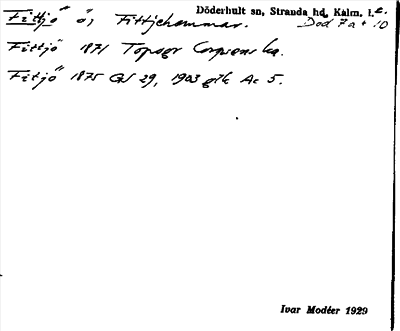 Döderhult sn, Stranda hd, Kalm. l.
Fittjö ö, Fittjehammar. Död 7a + 10
Fittjö 1871 Topogr Corpsens ka.
Fittjö 1875 GS 29, 1903 gtk Ac 5.
Ivar Modéer 1929